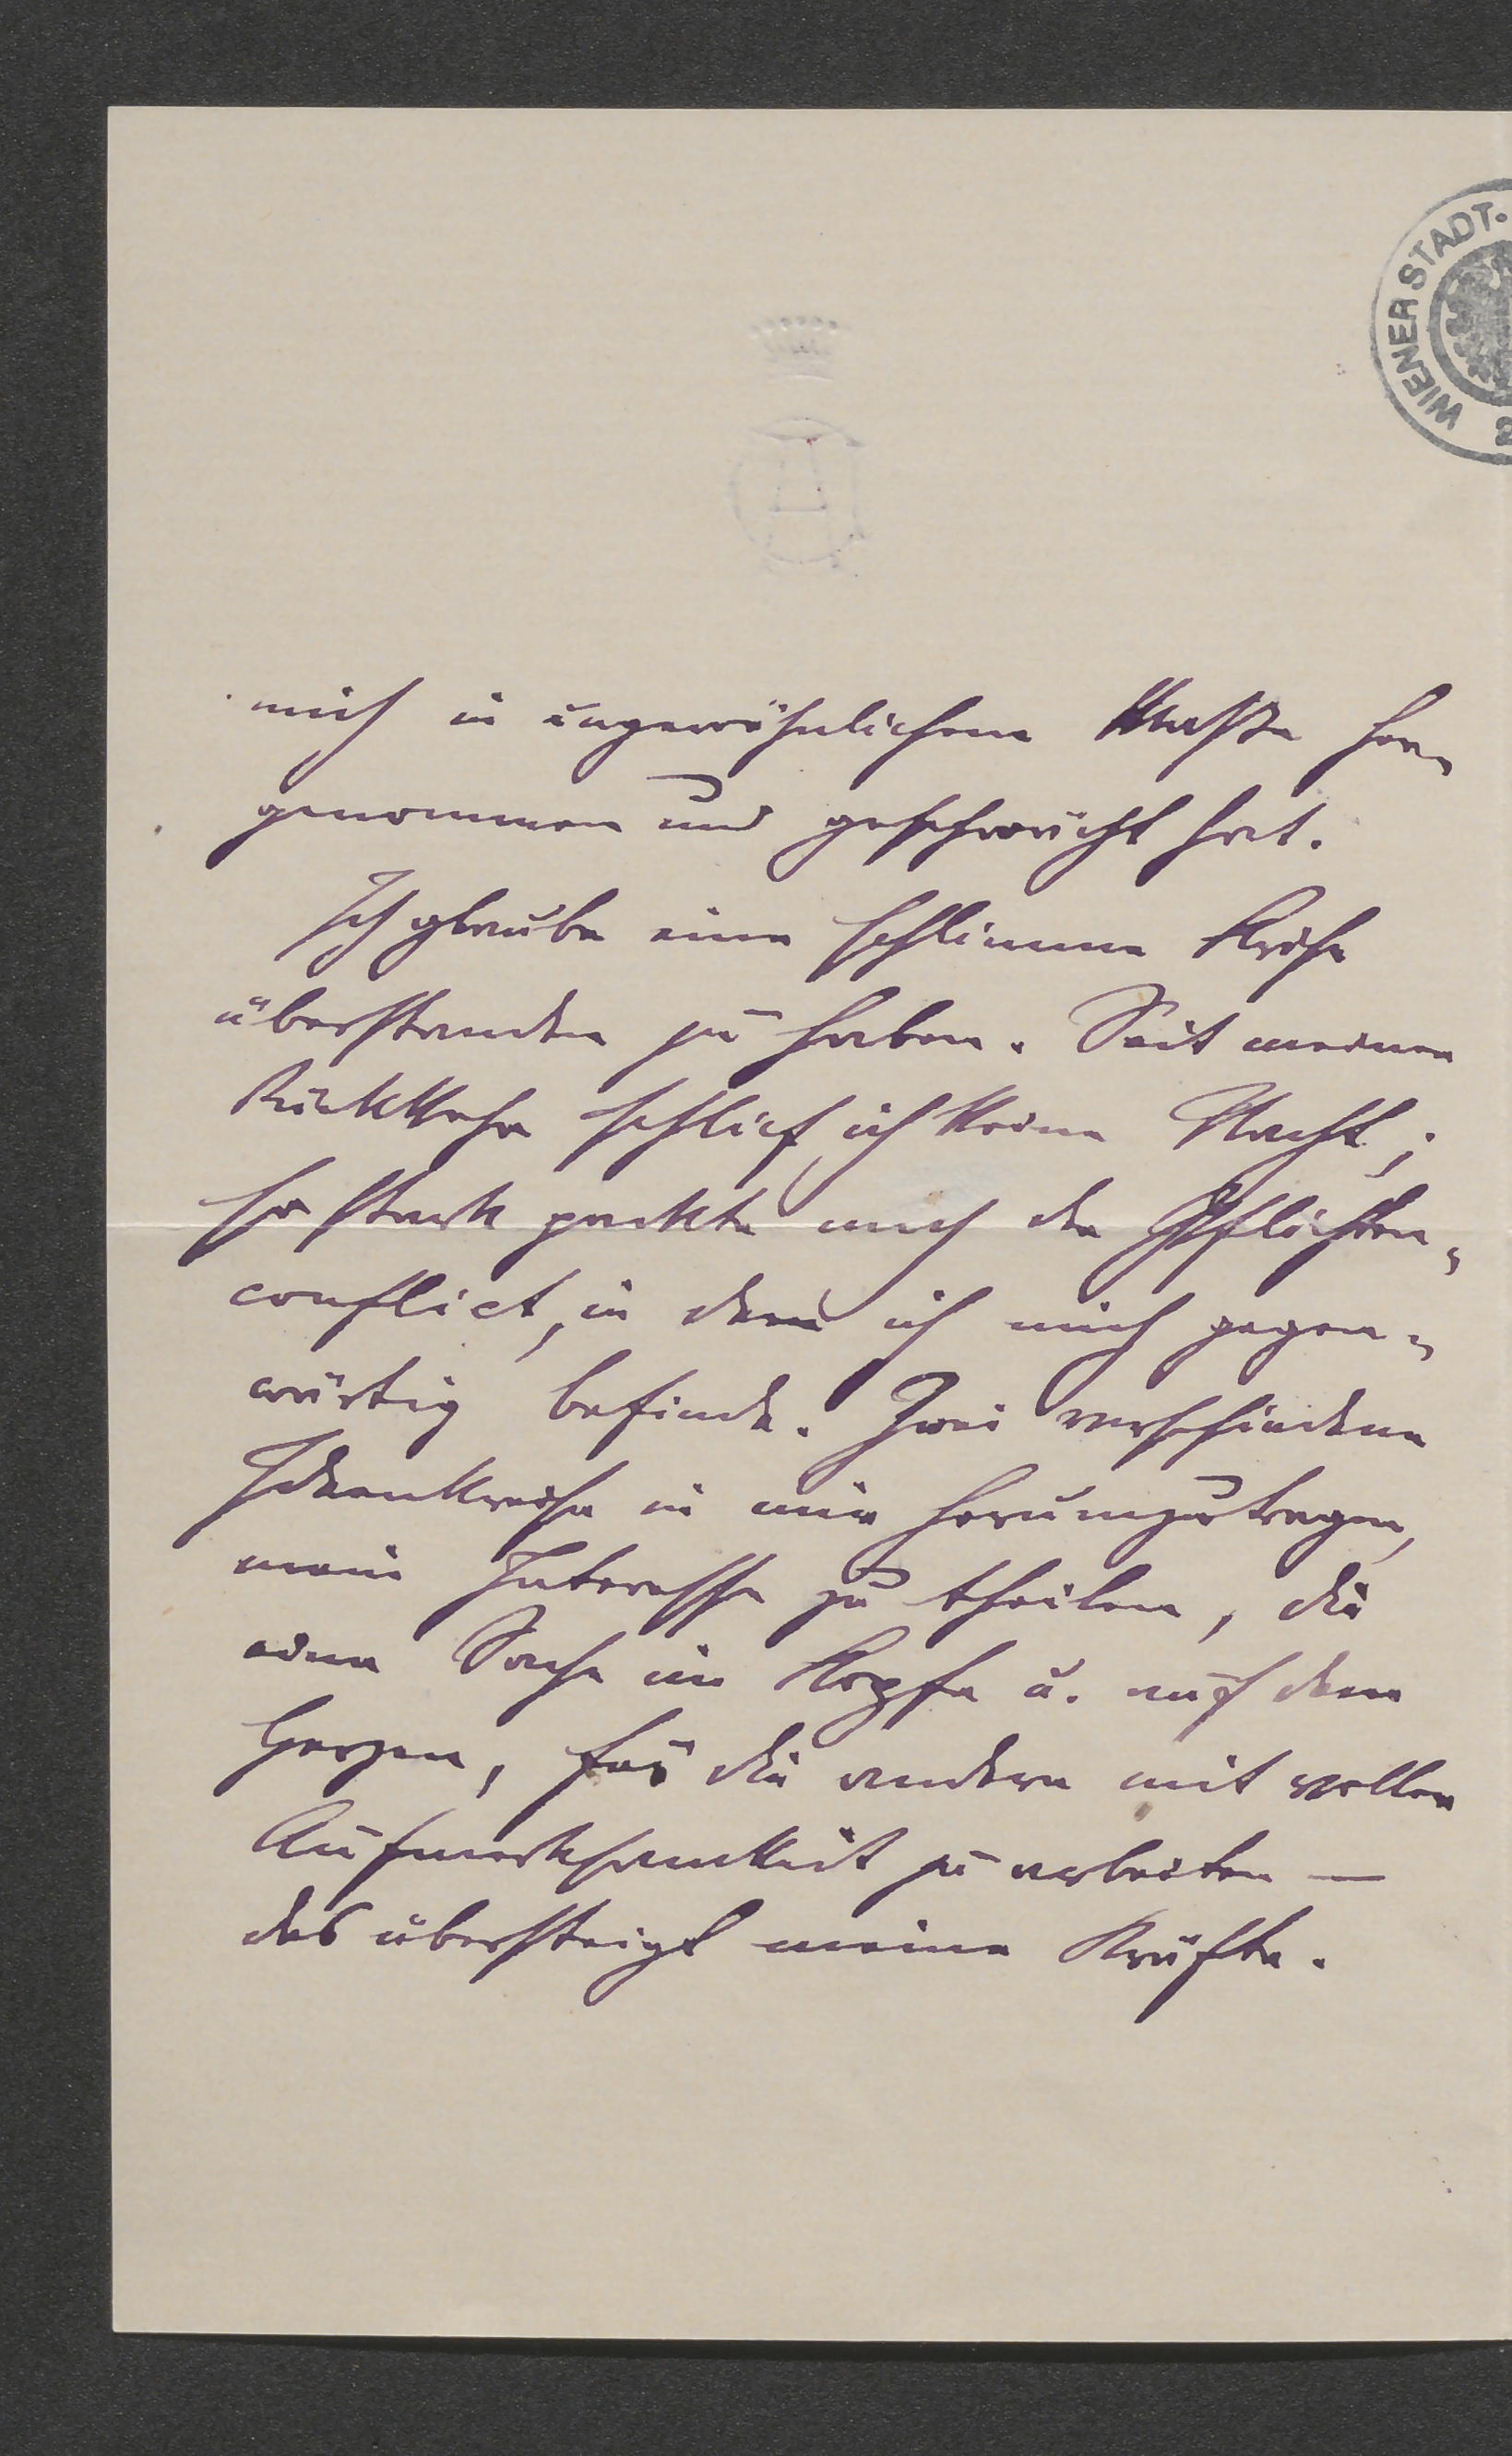 WIENER STADT-
mich in ungewöhnlichem Maße her-
genommen und geschwächt hat.
Ich glaube eine schlimme Krise
überstanden zu haben. Seit meiner
Rückkehr schlief ich keine Nacht;
so stark packte mich der Pflichten-
conflict, in dem ich mich gegen-
wärtig befinde. Zwei verschiedene
Ideenkreise in mir herumzutragen,
mein Interesse zu theilen, die
eine Sache im Kopfe u. auf dem
Herzen, für die andere mit voller
Aufmerksamkeit zu arbeiten —
das übersteigt meine Kräfte.